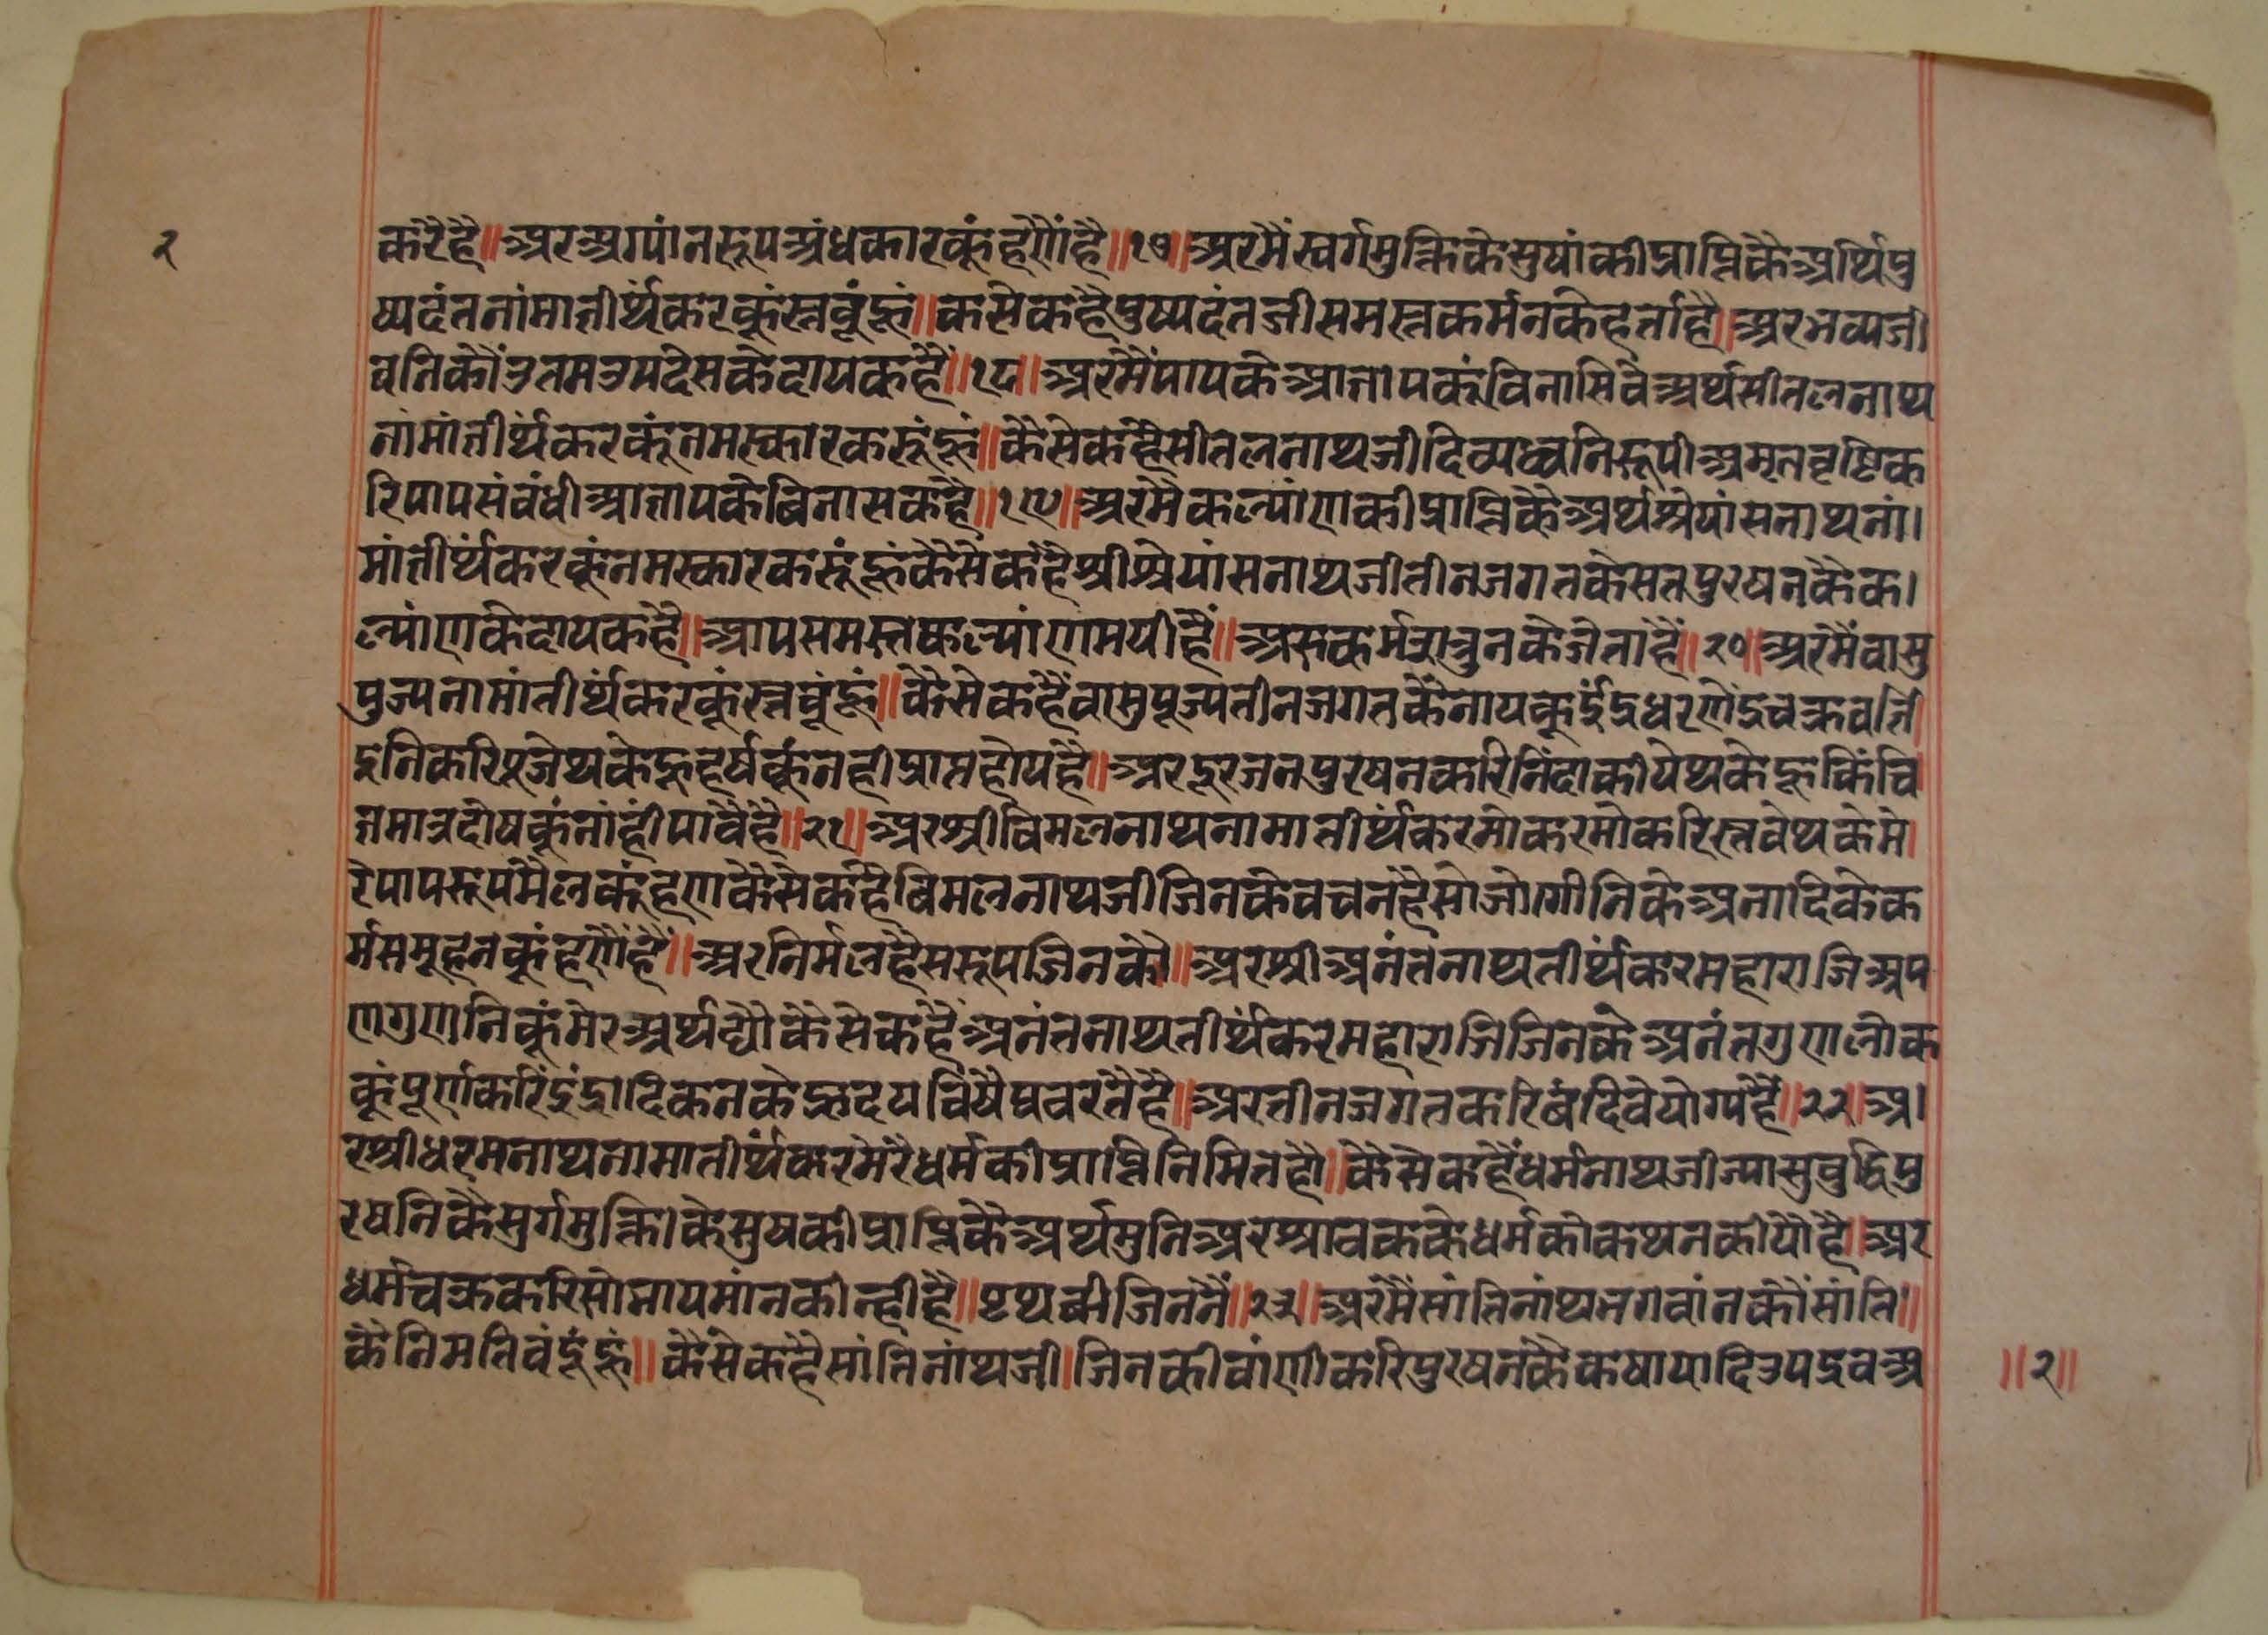 २
करेहै॥अरअग्यांनरूपअंधकारकूंहरणैंहै॥१७॥अरमैंस्वर्गमुक्तिकेसुषांकीप्राप्तिकैअर्थिपु
ष्पदंतनांमातीर्थंकरकूंस्तवूंहूं॥कसेकहैपुष्पदंतजीसमस्तकर्मनकेहर्ताहै॥अरभव्यजी
वनिकौंउतमउपदेसकेदायकहैं॥१८॥अरमैंपापकेआतापकूंविनासिवेअर्थसीतलनाथ
नांमांतीर्थंकरकूंनमस्कारकरूंहूं॥कैसेकहैसीतलनाथजीदिव्यध्वनिरूपीअमृतवृष्टिक
रिपापसंबंधीआतापकेबिनासकहै॥१९॥अरमैकल्यांणकीप्राप्तिकैअर्थश्रेयांसनाथनां।
मांतीर्थंकरकूंनमस्कारकरूंहूंकैसेकहैश्रीश्रेयांसनाथजीतीनजगतकेसतपुरषनकैक।
ल्यांणकेदायकहै॥आपसमस्तकल्यांणमयीहैं॥अरुकर्मशत्रुनकेजेताहैं॥२०॥अरमैंवासु
पुज्यनामांतीर्थंकरकूंस्तवूंहूं॥कैसेकहैंवासुपूज्यतीनजगतकैनायकूइंद्रधरणेंद्रचक्रवर्ति
द्रनिकरिपूजेथकेहूहर्षकूंनहीप्राप्तहोयहै॥अरदूरजनपुरषनकरिनिंदाकीयेथकेहूकिंचि
तमात्रदोषकूंनांहीपावैहै॥२१॥अरश्रीविमलनाथनामातीर्थंकरमोकरमोकरिस्तवेथकेमे
रेपापरूपमैलकूंहरणकैसेकहैबिमलनाथजीजिनकेवचनहैसोजोगीनिकेअनादिकेक
र्मसमूहनकूंहरणैंहैं॥अरनिर्मलहैसरूपजिनकौ॥अरश्रीअनंतनाथतीर्थंकरमहाराजिअप
णगुणनिकूंमेरअर्थद्यौकैसेकहैंअनंतनाथतीर्थंकरमहाराजिजिनकेअनंतगुणलोक
कूंपूर्णकरिइंद्रादिकनकेह्रदयविषैप्रवरतैहै॥अरतीनजगतकरिबंदिवेयोग्यहैं॥२२॥अ।
रश्रीधरमनाथनामातीर्थंकरमेरैधर्मकीप्राप्तिनिमितहौ॥कैसेकहैंधर्मनाथजीज्यासुबुद्धिपु
रषनिकैसुर्गमुक्तिकेसुषकीप्राप्तिकैअर्थमुनिअरश्रावककेधर्मकोकथनकीयौहै॥अर
धर्मचक्रकरिसोभायमांनकीन्हीहै॥प्रथवीजिननैं॥२३॥अरमैंसांतिनांथभगवांनकौंसांति॥
कैनिमतिवंदूंहूं॥कैसेकहैसांतिनांथजी।जिनकीवांणीकरिपुरषनकैकषायादिउपद्रवअ
॥२॥